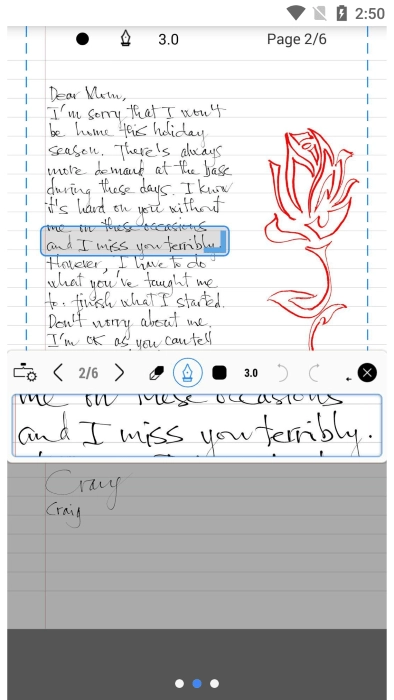 2:50
3.0
Page 2/6
Dear Mom,
I'm sorry that I won't
be home this holiday
season. There's always
more demand at the base
during these days. I know
it's hard on you without
me on these occasions
and I miss you terribly.
However, I have to do
what you've taught me
to: finish what I started.
Don't worry about me.
I'm OK as you can tell
2/6
3.0
me on these occasions
and I miss you terribly.
Craig
Craig